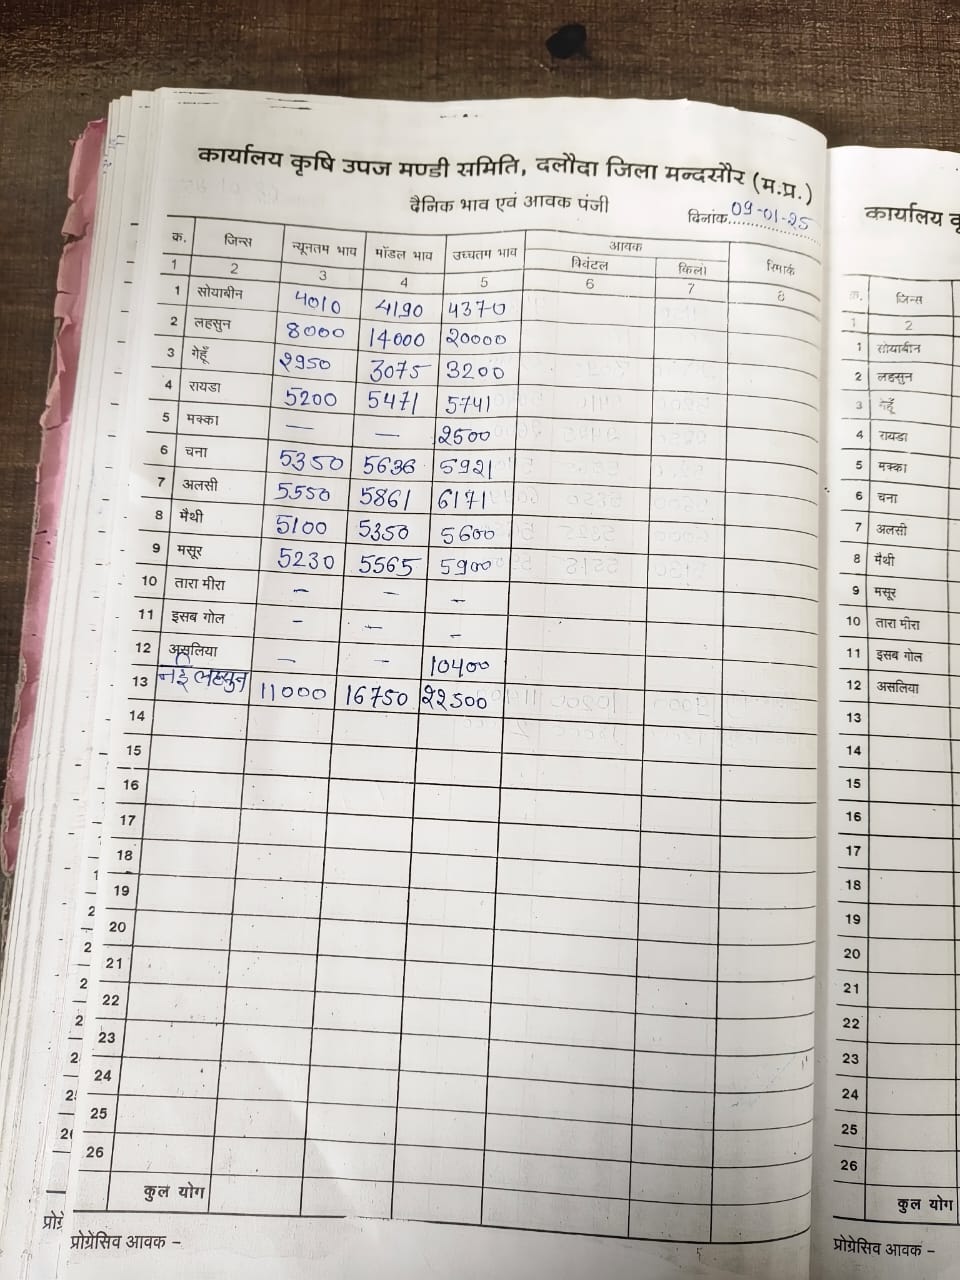 कार्यालय कृषि उपज मण्डी समिति, दलौदा जिला मन्दसौर (म.प्र.)
दैनिक भाव एवं आवक पंजी
दिनांक 09-01-25
क. जिन्स न्यूनतम भाव मॉडल भाव उच्चतम भाव आवक रिमार्क
क्विंटल किलो
1 2 3 4 5 6 7 8
1 सोयाबीन 4010 4190 4370
2 लहसुन 8000 14000 20000
3 गेहूँ 2950 3075 3200
4 रायडा 5200 5471 5741
5 मक्का — — 2500
6 चना 5350 5636 5921
7 अलसी 5550 5861 6171
8 मैथी 5100 5350 5600
9 मसूर 5230 5565 5900
10 तारा मीरा – – –
11 इसब गोल – – –
12 असलिया – – 10400
13 नई लहसुन 11000 16750 22500
14
15
16
17
18
19
20
21
22
23
24
25
26
कुल योग
प्रोग्रेसिव आवक –
कार्यालय
क्र. जिन्स
1 2
1 सोयाबीन
2 लहसुन
3 गेहूँ
4 रायडा
5 मक्का
6 चना
7 अलसी
8 मैथी
9 मसूर
10 तारा मीरा
11 इसब गोल
12 असलिया
13
14
15
16
17
18
19
20
21
22
23
24
25
26
कुल योग
प्रोग्रेसिव आवक –